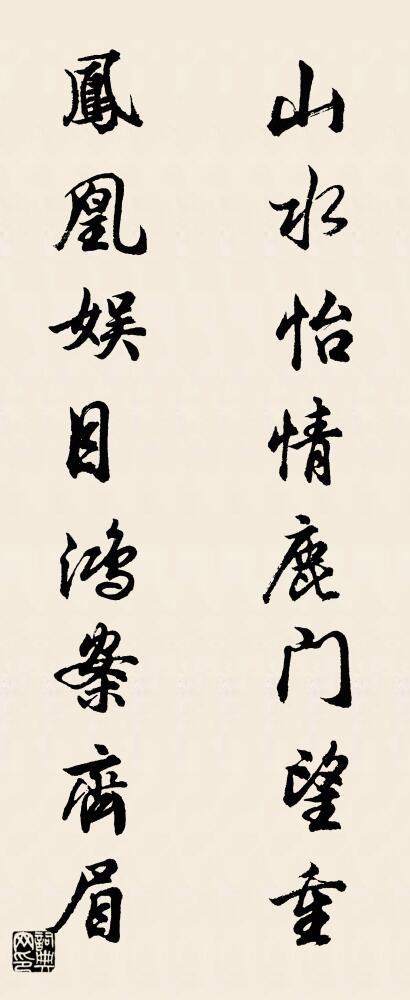 山水怡情鹿门望重
鳳凰娱目鸿案齊眉
詞典网印